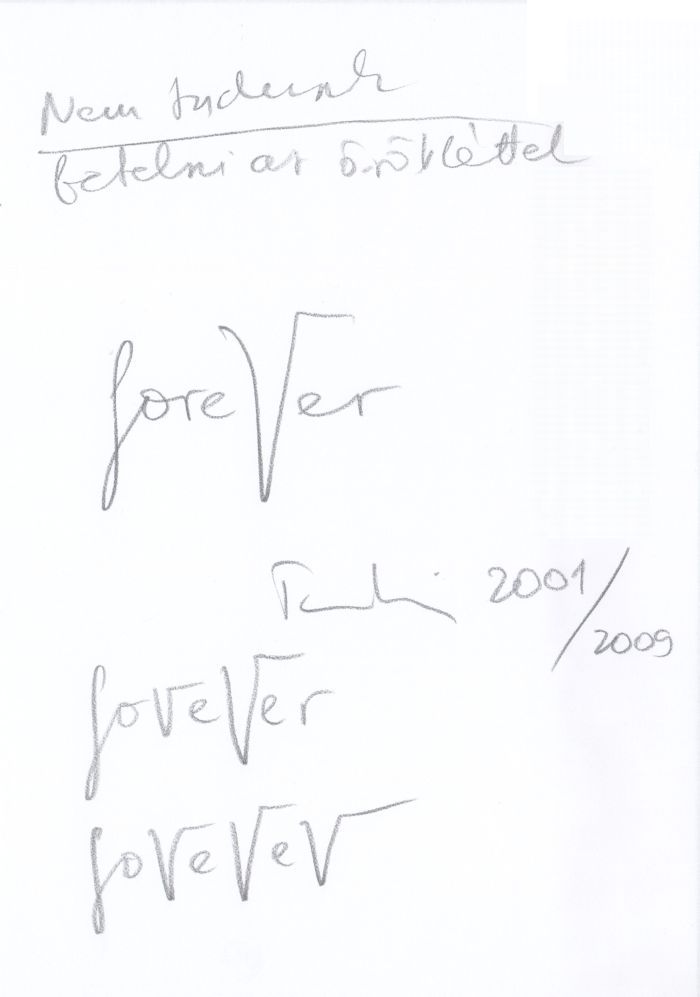 Nem tudunk
betelni az örökléttel
foreVer
2001/
2009
foVeVer
foVeVeV